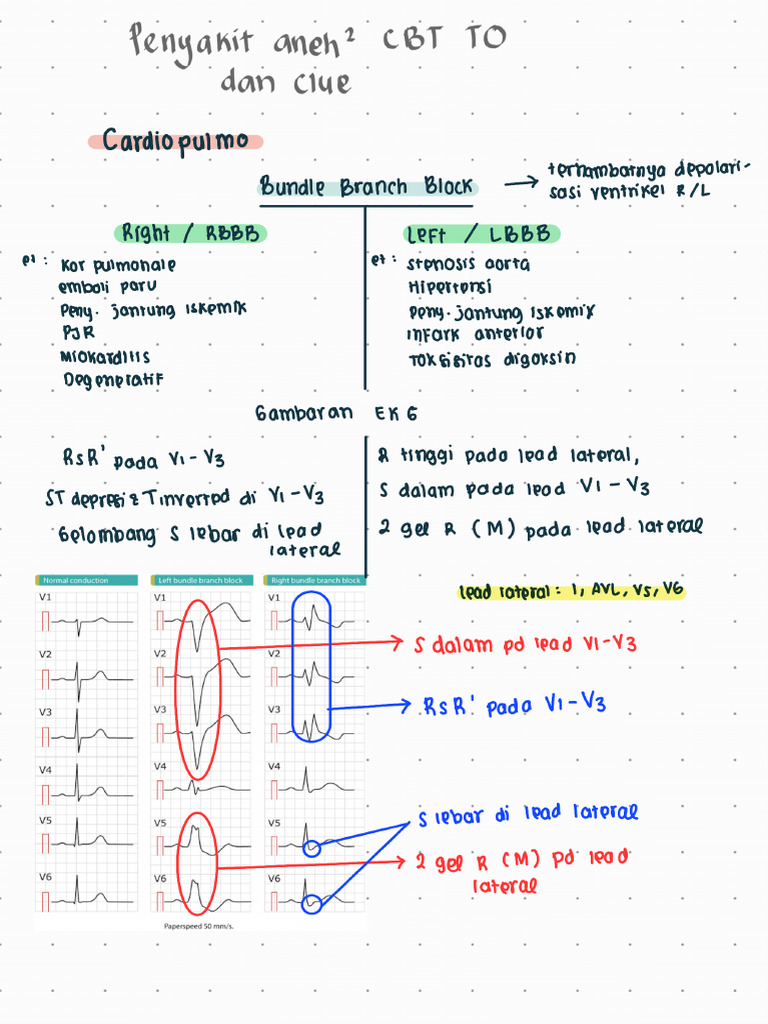 Penyakit aneh² CBT TO
dan clue
Cardiopulmo
Bundle Branch Block
terhambatnya depolari-
sasi ventrikel R/L
Right / RBBB
et :
Kor pulmonale
emboli paru
Peny. jantung iskemik
PJR
Miokarditis
Degeneratif
Left / LBBB
et :
Stenosis aorta
Hipertensi
Peny. jantung iskemik
Infark anterior
Toksisitas digoksin
Gambaran EKG
RsR' pada V1-V3
ST depresi & T inverted di V1-V3
Gelombang S lebar di lead
lateral
R tinggi pada lead lateral,
S dalam pada lead V1-V3
2 gel R (M) pada lead lateral
lead lateral: I, AVL, V5, V6
Normal conduction
V1
V2
V3
V4
V5
V6
Left bundle branch block
V1
V2
V3
V4
V5
V6
Right bundle branch block
V1
V2
V3
V4
V5
V6
Paperspeed 50 mm/s.
S dalam pd lead V1-V3
RsR' pada V1-V3
S lebar di lead lateral
2 gel R (M) pd lead
lateral